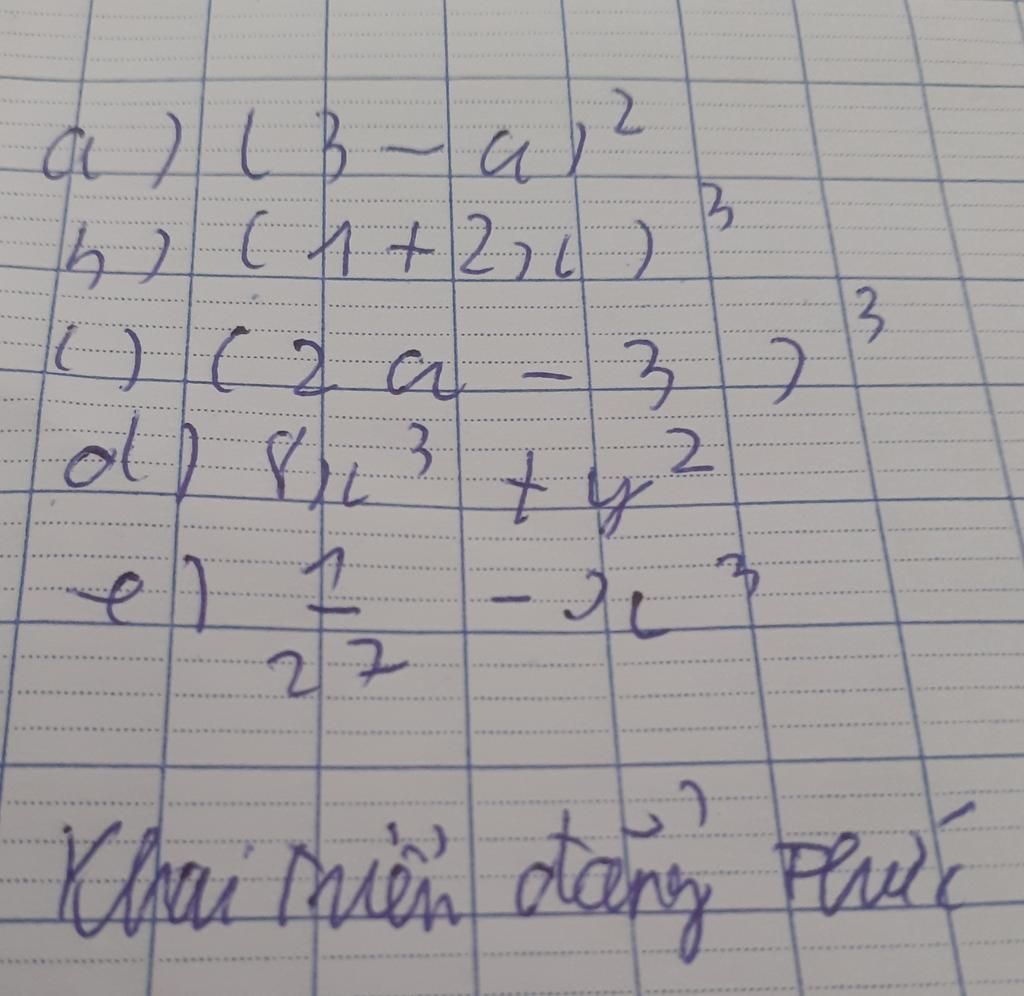 a) (3 - a)²
b) (1 + 2x)³
c) (2a - 3)³
d) 8x³ + y²
e) 1/27 - x³
Khai triển đẳng thức